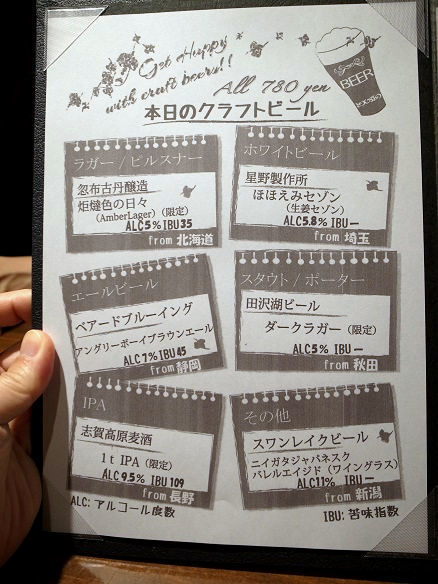 Get Happy
with craft beers!!
All 780 yen
BEER
本日のクラフトビール
ラガー / ピルスナー
忽布古丹醸造
炬燵色の日々
(AmberLager)(限定)
ALC5% IBU35
from 北海道
ホワイトビール
星野製作所
ほほえみセゾン
(生姜セゾン)
ALC5.8% IBUー
from 埼玉
エールビール
ベアードブルーイング
アングリーボーイブラウンエール
ALC7% IBU45
from 静岡
スタウト / ポーター
田沢湖ビール
ダークラガー (限定)
ALC5% IBUー
from 秋田
IPA
志賀高原麦酒
1t IPA (限定)
ALC9.5% IBU109
from 長野
その他
スワンレイクビール
ニイガタジャパネスク
バレルエイジド (ワイングラス)
ALC11% IBUー
from 新潟
ALC: アルコール度数
IBU: 苦味指数